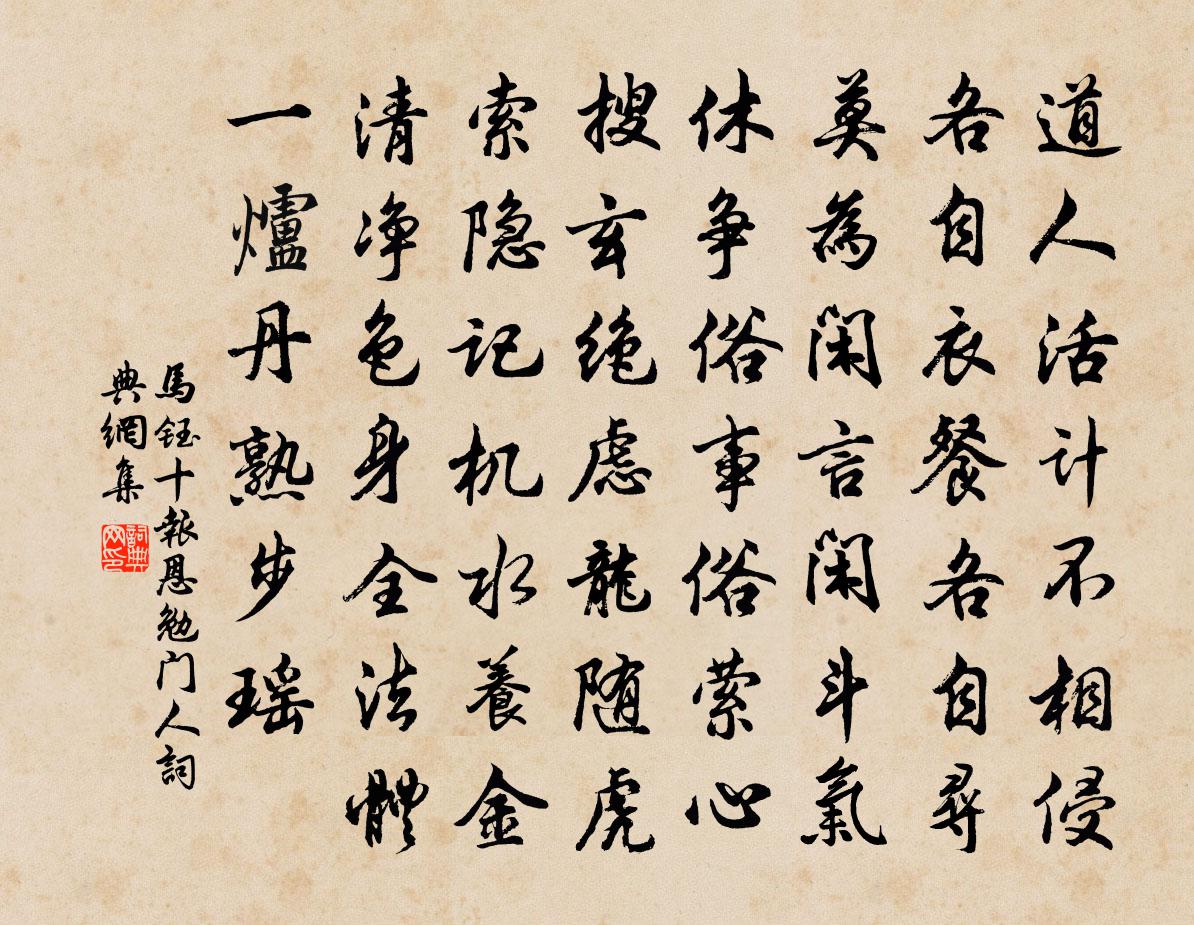 道人活计不相侵
各自衣餐各自尋
莫為閑言閑斗氣
休争俗事俗萦心
搜玄绝虑龍随虎
索隐记机水養金
清净色身全法體
一爐丹熟步瑶
馬鈺十報恩勉门人詞
典網集
詞典网印